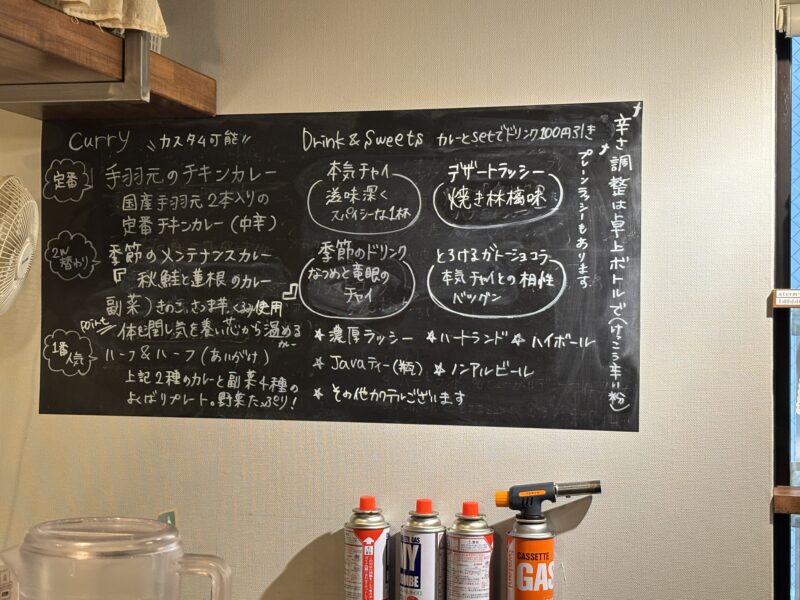 Curry \\ カスタム可能 //
定番
手羽元のチキンカレー
国産手羽元2本入りの
定番チキンカレー(中辛)
2W
替わり
季節のメンテナンスカレー
『秋鮭と蓮根のカレー』
副菜)きのこ、さつま芋、くるみ使用
point 体を潤し気を養い芯から温める
カレー
1番
人気
ハーフ&ハーフ(あいがけ)
上記2種のカレーと副菜4種の
よくばりプレート。野菜たっぷり!
Drink & Sweets カレーとsetでドリンク100円引き
本気チャイ
滋味深く
スパイシーな1杯
デザートラッシー
焼き林檎味
プレーンラッシーもあります。
季節のドリンク
なつめと
チャイ
とろけるガトーショコラ
本気チャイとの相性
バツグン
☆ 濃厚ラッシー ☆ ハートランド ☆ ハイボール
☆ Javaティー(瓶) ☆ ノンアルビール
☆ その他カクテルございます
辛さ調整は卓上ボトルで(けっこう辛い粉)
CASSETTE
GAS